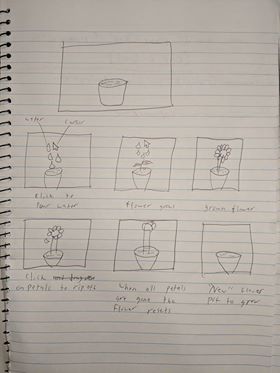 water
cursor
click to
pour water
flower grows
grown flower
click
on petals to rip off
when all petals
are gone the
flower resets
"New" flower
pot to grow